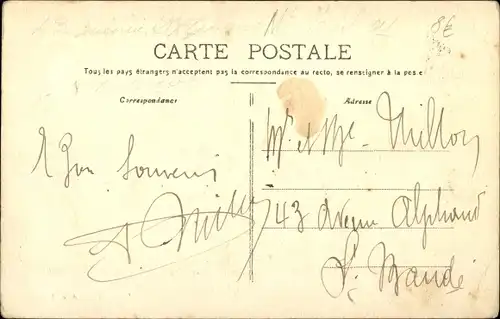 8€
CARTE POSTALE
Tous les pays étrangers n'acceptent pas la correspondance au recto, se renseigner à la poste
Correspondance
Adresse
Mr et Me Millon
1 Bon Souvenir
43 Avenue Alphand
St. Mandé